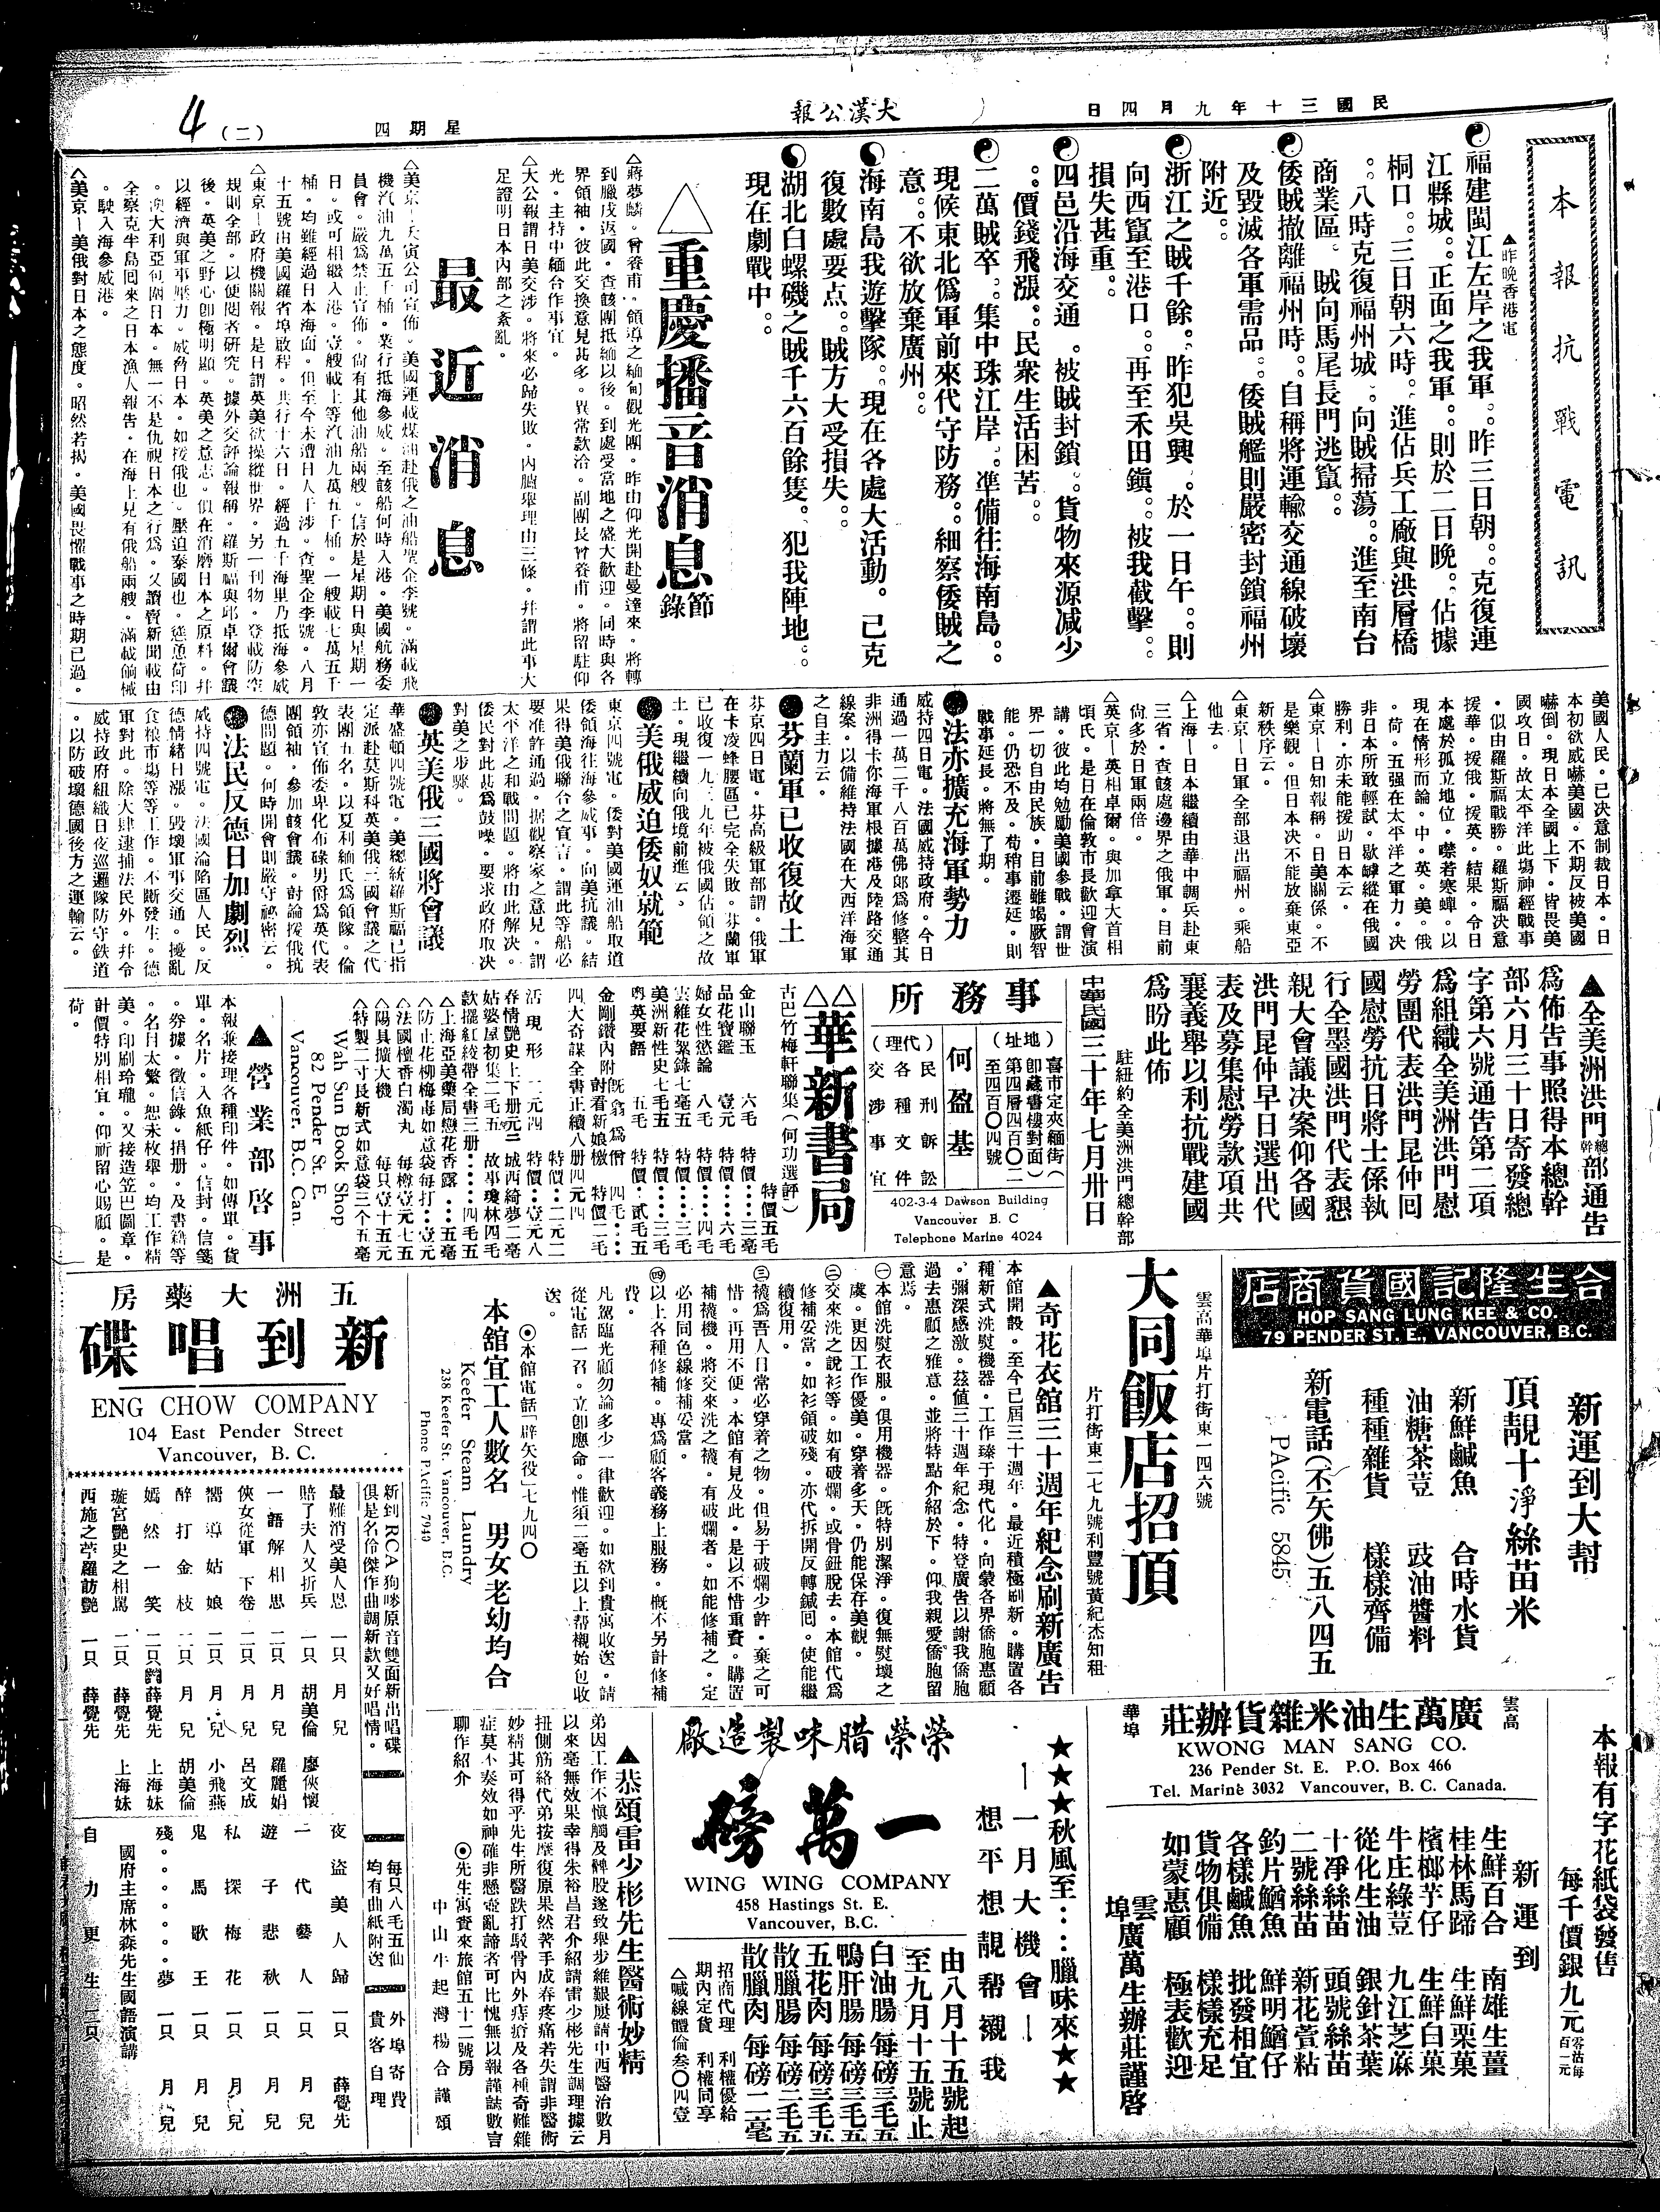 民國三十年九月四日
大漢公報
星期四
(二)
4
本報抗戰電訊
▲昨晚香港電
福建閩江左岸之我軍。。昨三日朝。。克復連
江縣城。。正面之我軍。。則於二日晚。。佔據
桐口。。三日朝六時。。進佔兵工廠與洪層橋
。。八時克復福州城。。向賊掃蕩。。進至南台
商業區。賊向馬尾長門逃竄。。
倭賊撤離福州時。。自稱將運輸交通線破壞
及毀滅各軍需品。。倭賊艦則嚴密封鎖福州
附近。。
浙江之賊千餘。。昨犯吳興。。於一日午。。則
向西竄至港口。。再至禾田鎭。。被我截擊。。
損失甚重。。
四邑沿海交通。被賊封鎖。。貨物來源減少
。。價錢飛漲。。民衆生活困苦。。
二萬賊卒。。集中珠江岸。。準備往海南島。。
現候東北僞軍前來代守防務。。細察倭賊之
意。。不欲放棄廣州。。
海南島我遊擊隊。。現在各處大活動。已克
復數處要点。。賊方大受損失。。
湖北白螺磯之賊千六百餘隻。犯我陣地。。
現在劇戰中。。
△重慶播音消息節錄
△蔣夢麟。曾養甫。領導之緬甸觀光團。昨由仰光開赴曼達來。將轉
到臘戌返國。查該團抵緬以後。到處受當地之盛大歡迎。同時與各
界領袖。彼此交換意見甚多。異常款洽。副團長曾養甫。將留駐仰
光。主持中緬合作事宜。
△大公報謂日美交涉。將來必歸失敗。內臚舉理由三條。幷謂此事大
足證明日本內部之紊亂。
最近消息
機汽油九萬五千桶。業行抵海參威。至該船何時入港。美國航務委
員會。嚴爲禁止宣佈。尙有其他油船兩艘。信於是星期日與星期一
日。或可相繼入港。壹艘載上等汽油九萬五千桶。一艘載七萬五千
桶。均雖經過日本海面。但至今未遭日人干涉。查聖企李號。八月
十五號由美國羅省埠啟程。共行十六日。經過五千海里乃抵海參威
△東京—政府機關報。是日謂英美欲操縱世界。另一刊物。登載防空
規則全部。以便閱者研究。據外交評論報稱。羅斯福與邱卓爾會議
後。英美之野心卽極明顯。英美之意志。似在消磨日本之原料。幷
以經濟與軍事壓力。威脅日本。如援俄也。壓迫泰國也。慫恿荷印
。澳大利亞包圍日本。無一不是仇視日本之行爲。又讀賣新聞載由
全察克半島囘來之日本漁人報告。在海上見有俄船兩艘。滿載偷械
。駛入海參威港。
△美京—美俄對日本之態度。昭然若揭。美國畏懼戰事之時期已過。
美國人民。已決意制裁日本。日
本初欲威嚇美國。不期反被美國
嚇倒。現日本全國上下。皆畏美
國攻日。故太平洋此塲神經戰事
。似由羅斯福戰勝。羅斯福決意
援華。援俄。援英。結果。令日
本處於孤立地位。噤若寒蟬。以
現在情形而論。中。英。美。俄
。荷。五强在太平洋之軍力。决
非日本所敢輕試。歇罅縱在俄國
勝利。亦未能援助日本云。
△東京—日知報稱。日美關係。不
是樂觀。但日本决不能放棄東亞
新秩序云。
△東京—日軍全部退出福州。乘船
他去。
△上海—日本繼續由華中調兵赴東
三省。查該處邊界之俄軍。目前
尙多於日軍兩倍。
△英京—英相卓爾。與加拿大首相
頃氏。是日在倫敦市長歡迎會演
講。彼此均勉勵美國參戰。謂世
界一切自由民族。目前雖竭厥智
能。仍恐不及。苟稍事遷延。則
戰事延長。將無了期。
●法亦擴充海軍勢力
威持四日電。法國威持政府。今日
通過一萬二千八百萬佛郎爲修整其
非洲得卡你海軍根據港及陸路交通
線案。以備維持法國在大西洋海軍
之自主力云。
●芬蘭軍已收復故土
芬京四日電。芬高級軍部謂。俄軍
在卡凌蜂腰區已完全失敗。芬蘭軍
已收復一九三九年被俄國佔領之故
土。現繼續向俄境前進云。
●美俄威迫倭奴就範
東京四號電。倭對美國運油船取道
倭領海往海參威事。向美抗議。結
果得美俄聯合之宣言。謂此等船必
要准許通過。據觀察家之意見。謂
太平洋之和戰問題。將由此解决。
倭民對此甚爲鼓噪。要求政府取决
對美之步驟。
●英美俄三國將會議
華盛頓四號電。美總統羅斯福已指
定派赴莫斯科英美俄三國會議之代
表團五名。以夏利緬氏爲領隊。倫
敦亦宣佈委卑化布碌男爵爲英代表
團領袖。參加該會議。討論援俄抗
德問題。何時開會則嚴守祕密云。
●法民反德日加劇烈
威持四號電。法國淪陷區人民。反
德情緒日漲。毀壞軍事交通。擾亂
食粮市塲等等工作。不斷發生。德
軍對此。除大肆逮捕法民外。幷令
威持政府組織日夜巡邏隊防守鉄道
。以防破壞德國後方之運輸云。
▲全美洲洪門總幹部通告
爲佈告事照得本總幹
部六月三十日寄發總
字第六號通告第二項
爲組織全美洲洪門慰
勞團代表洪門昆仲回
國慰勞抗日將士係執
行全墨國洪門代表懇
親大會議决案仰各國
洪門昆仲早日選出代
表及募集慰勞款項共
襄義舉以利抗戰建國
爲盼此佈
駐紐約全美洲洪門總幹部
中華民國三十年七月卅日
事務所
(地址)
喜市定夾緬街
卽藏書樓對面
第四層四百〇二
至四百〇四號
何盈基
(代理)
民刑訴訟
各種文件
交涉事宜
402-3-4 Dawson Building
Vancouver B. C
Telephone Marine 4024
△△華新書局
古巴竹梅軒聯集(何功選評) 特價五毛
金山聯玉 六毛 特價‥‥三毫
品花寶鑑 壹元 特價‥‥六毛
婦女性慾論 八毛 特價‥‥四毛
雲維花絮錄七毫五 特價‥‥三毛
美洲新性史七毛五 特價‥‥三毛
粤英要語 五毛 特價‥貳毛五
四大奇謀全書正續八册四元四
活現形 二元四 特價‥壹元八
春情艷史上下册元二 城西綺夢二毫
姑婆屋初集二毛五 故事瓊林四毛
款擺紅絞帶全書三册‥‥‥四毛五
△上海亞美藥局戀花香露‥‥五毫
△防止花柳梅毒如意袋每打‥壹元
△法國檀香白濁丸 每樽壹元七五
△陽具擴大機 每只壹十五元
△特製二寸長新式如意袋三个五毫
Wah Sun Book Shop
82 Pender St. E.
Vancouver, B.C. Can.
▲營業部啓事
本報兼接理各種印件。如傳單。貨
單。名片。入魚紙仔。信封。信箋
。券據。徵信錄。捐册。及書籍等
。名目太繁。恕未枚舉。均工作精
美。印刷玲瓏。又接造笠巴圖章。
計價特別相宜。仰祈留心賜顧。是
荷。
合生隆記國貨商店
HOP SANG LUNG KEE & CO.
79 PENDER ST. E., VANCOUVER, B.C.
新運到大幫
頂靚十淨絲苗米
新鮮鹹魚 合時水貨
油糖茶荳 豉油醬料
種種雜貨 樣樣齊備
新電話(丕矢佛)五八四五
PAcific 5845
大同飯店招頂
雲高華埠片打街東一四六號
片打街東二七九號利豐號黃紀杰知租
▲奇花衣舘三十週年紀念刷新廣告
本館開設。至今已屆三十週年。最近積極刷新。購置各
種新式洗熨機器。工作臻于現代化。向蒙各界僑胞惠顧
。彌深感激。茲値三十週年紀念。特登廣告以謝我僑胞
過去惠顧之雅意。並將特點介紹於下。仰我親愛僑胞留
意焉。
㊀本館洗熨衣服。俱用機器。旣特別潔淨。復無熨壞之
虞。更因工作優美。穿着多天。仍能保存美觀。
㊁交來洗之說衫等。如有破爛。或骨鈕脫去。本館代爲
修補妥當。如衫領破殘。亦代拆開反轉鍼囘。使能繼
續復用。
㊂襪爲吾人日常必穿着之物。但易于破爛少許。棄之可
惜。再用不便。本館有見及此。是以不惜重資。購置
補襪機。將交來洗之襪。有破爛者。如能修補之。定
必用同色線修補妥當。
㊃以上各種修補。專爲顧客義務上服務。概不另計修補
費。
凡駕臨光顧勿論多少一律歡迎。如欲到貴寓收送。請
從電話一召。立卽應命。惟須二毫五以上帮襯始包收
送。
◉本館電話「辟矢役」七九四〇
本舘宜工人數名 男女老幼均合
Keefer Steam Laundry
238 Keefer St. Vancouver, B.C.
Phone PAcific 7940
五洲大藥房
新到唱碟
ENG CHOW COMPANY
104 East Pender Street
Vancouver, B. C.
新到RCA狗嘜原音雙面新出唱碟
俱是名伶傑作曲調新款又好唱情。
每只八毛五仙
均有曲紙附送
外埠寄費
貴客自理
最難消受美人恩 一只 月兒 廖俠懷
賠了夫人又折兵 一只 胡美倫
一語解相思 二只 月兒 羅麗娟
俠女從軍下卷 二只 月兒 呂文成
嚮導姑娘 二只 月兒 小飛燕
醉打金枝 二只 月兒 胡美倫
嫣然一笑 二只 薛覺先 上海妹
璇宮艷史之相駡 二只 薛覺先 上海妹
西施之苧羅訪艷 一只 薛覺先
夜盜美人歸 一只 薛覺先
一代藝人 一只 月兒
遊子悲秋 一只 月兒
私探梅花 一只 月兒
鬼馬歌王 一只 月兒
殘。。。。。。夢 一只 月兒
國府主席林森先生國語演講
自力更生 二只
本報有字花紙袋發售
每千價銀九元
零沽每百一元
雲高華埠
廣萬生油米雜貨辦莊
KWONG MAN SANG CO.
236 Pender St. E. P.O. Box 466
Tel. Marine 3032 Vancouver, B. C. Canada.
新運到
生鮮百合 南雄生薑
桂林馬蹄 生鮮栗菓
檳榔芋仔 生鮮白菓
牛庄綠荳 九江芝麻
從化生油 銀針茶葉
十淨絲苗 頭號絲苗
二號絲苗 新花萱粘
釣片鰌魚 鮮明鰌仔
各樣鹹魚 批發相宜
貨物俱備 樣樣充足
如蒙惠顧 極表歡迎
雲埠廣萬生辦莊謹啓
★★★秋風至‥‥臘味來★★
—一月大機會—
想平想靚帮襯我
榮榮腊味製造廠
一萬磅
WING WING COMPANY
458 Hastings St. E.
Vancouver, B.C.
由八月十五號起
至九月十五號止
白油腸 每磅三毛五
鴨肝腸 每磅三毛五
五花肉 每磅三毛五
散臘腸 每磅二毛五
散臘肉 每磅二毫
招商代理 利權優給
期內定貨 利權同享
△喊線體倫叁〇四壹
▲恭頌雷少彬先生醫術妙精
弟因工作不愼觸及髀股遂致舉步維艱屢請中西醫治數月
以來毫無效果幸得朱裕昌君介紹請雷少彬先生調理據云
扭側筋絡代弟按摩復原果然著手成春疼痛若失謂非醫術
妙精其可得乎先生所醫跌打駁骨內外痔瘡及各種奇難雜
症莫不奏效如神確非懸壺亂諦者可比愧無以報謹誌數言
聊作紹介 ◉先生寓賓來旅館五十二號房
中山牛起灣楊合謹頌